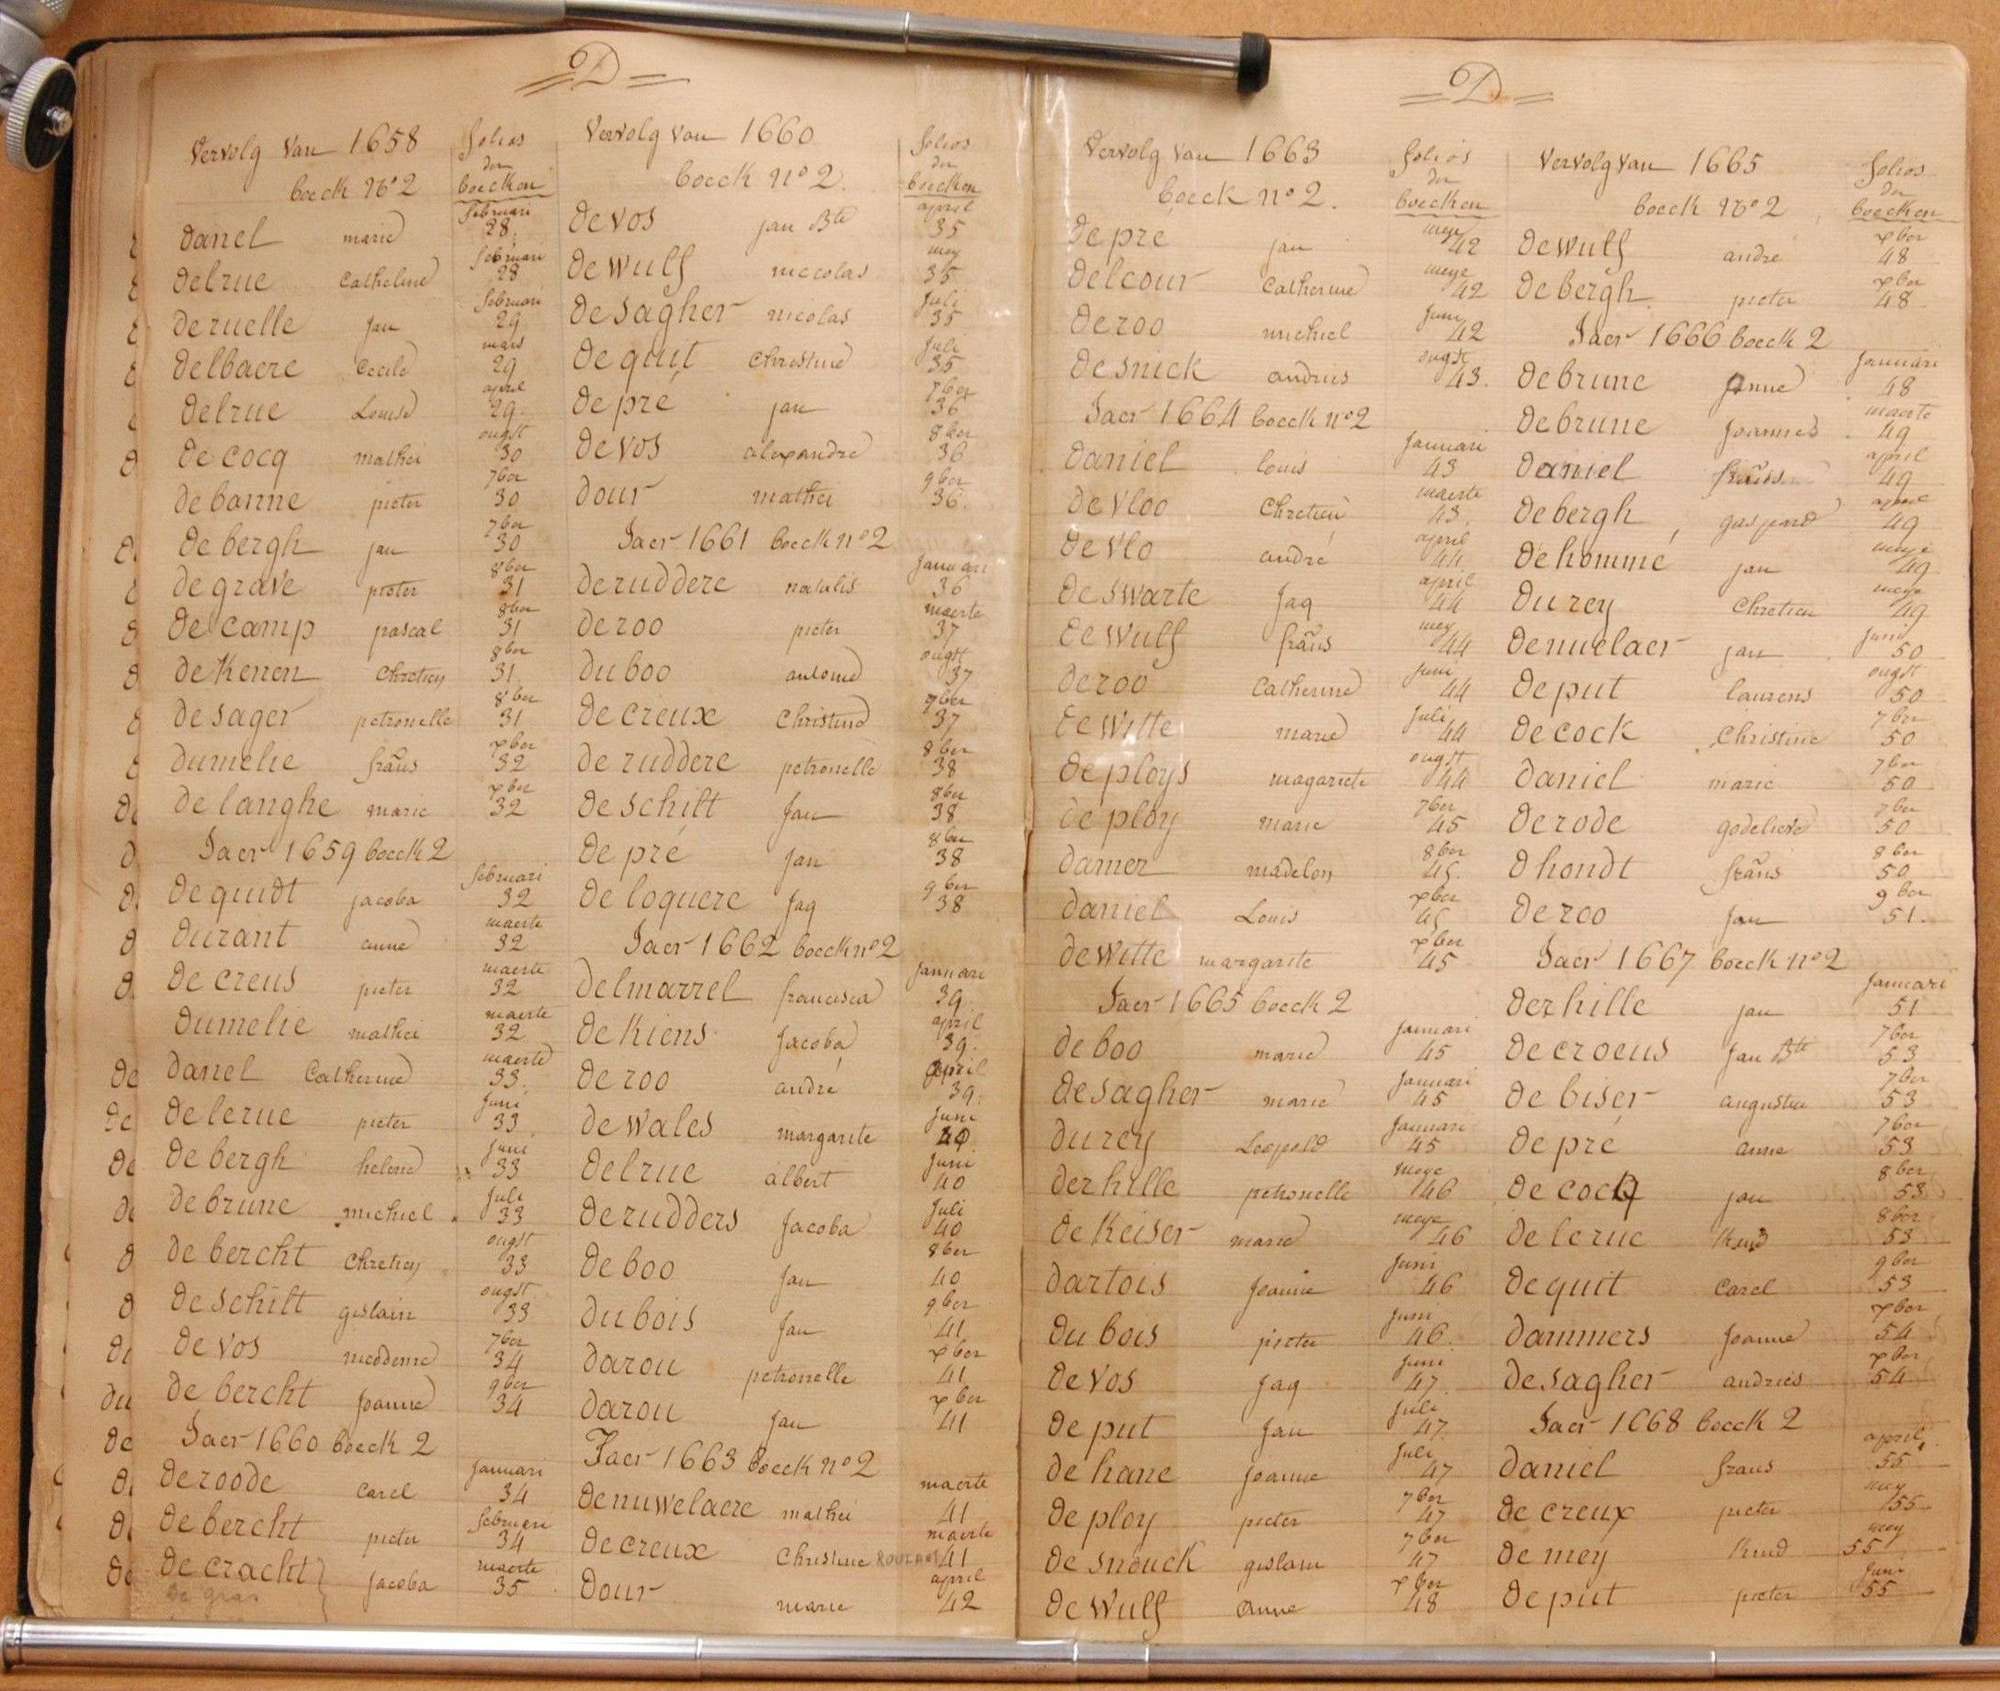 D
Vervolg van 1658 folios
boeck N° 2 der boecken
danel marie februari 28
delrue Catheline februari 28
deruelle Jan februari 29
delbaere Cecile mars 29
delrue Louise april 29
de cocq mathei ougst 30
de banne pieter 7ber 30
de bergh jan 7ber 30
de grave pieter 8ber 31
de camp pascal 8ber 31
de Kenen Chretien 8ber 31
de sager petronelle 8ber 31
dumelie frans xber 32
de langhe marie xber 32
Jaer 1659 boeck 2
de quidt jacoba februari 32
durant anne maerte 32
de creus pieter maerte 32
dumelie mathei maerte 32
danel Catherine maerte 33
de lerue pieter juni 33
de bergh helene juni 33
de brune michiel juli 33
de bercht Chretien ougst 33
de schilt gislain ougst 33
de vos 7ber 34
de bercht Joanne 9ber 34
Jaer 1660 boeck 2
de roode Carel januari 34
de bercht pieter februari 34
de cracht jacoba maerte 35
de gras
Vervolg van 1660 folios
boeck n° 2. der boecken
de vos jan Bte april 35
de wulf niccolas mey 35
de sagher nicolas juli 35
de quit Christine juli 35
de pré jan 7ber 36
de vos alexandre 8ber 36
dour mathei 9ber 36
Jaer 1661 boeck n° 2
de ruddere natalis januari 36
de roo pieter maerte 37
du boo antoine ougst 37
de creux Christine 7ber 37
de ruddere petronelle 8ber 38
de schilt Jan 8ber 38
de pré Jan 8ber 38
de loquere Jaq 9ber 38
Jaer 1662 boeck n° 2
delmarrel francisca januari 39
de Kiens Jacoba april 39
de roo andré april 39
de wales margarite juni 40
delrue albert juni 40
de rudders Jacoba juli 40
de boo Jan 8ber 40
du bois Jan 9ber 41
darou petronelle xber 41
darou Jan xber 41
Jaer 1663 boeck n° 2
de nuwelaere mathei maerte 41
de creux Christine maerte 41
dour marie april 42
D
Vervolg van 1663 folios
boeck n° 2. der boecken
de pre jan meye 42
delcour Catherine meye 42
de roo michiel juni 42
de snick andries ougst 43
Jaer 1664 boeck n° 2
daniel louis januari 43
de vloo Chretien maerte 43
de vlo andré april 44
de swarte Jaq april 44
de wulf frans mey 44
de roo Catherine juni 44
de witte marie juli 44
de ploys magariete ougst 44
de ploy marie 7ber 45
damer madelon 8ber 45
daniel Louis xber 45
de witte margarite xber 45
Jaer 1665 boeck 2
de boo marie januari 45
de sagher marie januari 45
du rey Leopold januari 45
derhille petronelle meye 46
de Keiser marie meye 46
dartois Joanne juni 46
du bois pieter juni 46
de vos Jaq juni 47
de put Jan juli 47
de hane Joanne juli 47
de ploy pieter 7ber 47
de snouck gislain 7ber 47
de wulf anne xber 48
Vervolg van 1665 folios
boeck N° 2 der boecken
de wulf andré xber 48
de bergh pieter xber 48
Jaer 1666 boeck 2
de brune anne januari 48
de brune Joannes maerte 49
daniel frans april 49
de bergh gaspard april 49
de hommé jan meye 49
du rey Chretien meye 49
de nuelaer jan juni 50
de put laurens ougst 50
de cock Christine 7ber 50
daniel marie 7ber 50
de rode godelieve 7ber 50
dhondt frans 8ber 50
de roo Jan 9ber 51
Jaer 1667 boeck n° 2
derhille jan januari 51
de croeus Jan Bte 7ber 53
de biser augustin 7ber 53
de pré anne 7ber 53
de cocq jan 8ber 53
de lerue Kind 8ber 53
de quit Carel 9ber 53
dammers Joanne xber 54
de sagher andries xber 54
Jaer 1668 boeck 2
daniel frans april 55
de creux pieter mey 55
de mey Kind mey 55
de put pieter juni 55